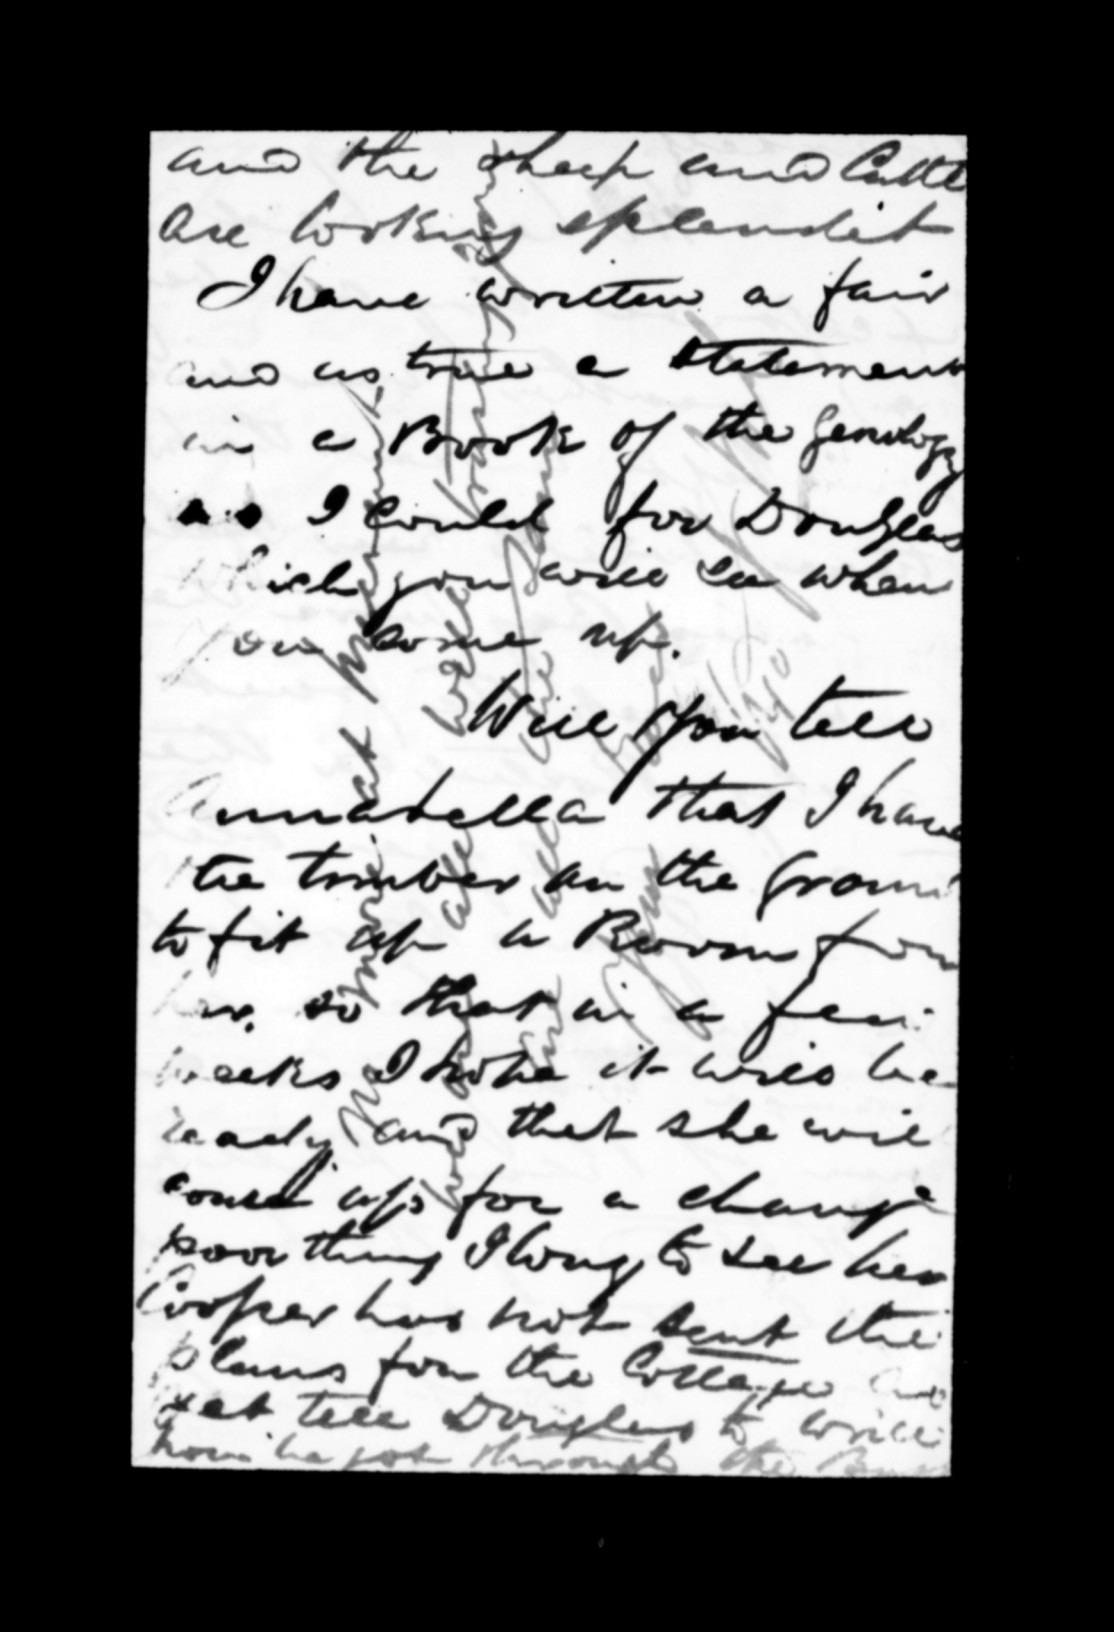 and the sheep and Cattle
are looking splendit
I have written a fair
and as true a statement
in a Book of the Genology
as I could for Douglas
which you will see when
you come up.
Will you tell
Annabella that I have
the timber on the ground
to fit up a Room for
her. so that in a few
weeks I hope it will be
ready and that she will
come up for a change
poor thing I long to see her
Cooper has not sent the
plans for the Cottage as
yet tell Douglas to write
how he got through the
No more at present
hoping all well
are all the same
Your